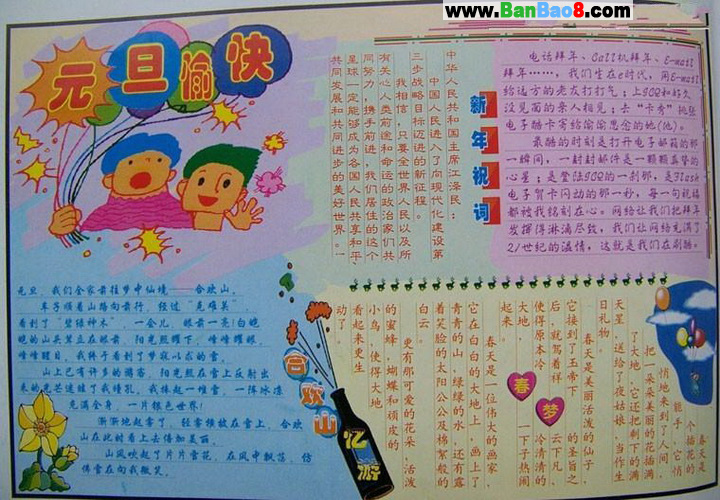 www.BanBao8.com
元旦愉快
新年祝词
中华人民共和国主席江泽民：
中国人民进入了向现代化建设第
三步战略目标迈进的新征程。
我相信，只要全世界人民以及所
有关心人类前途和命运的政治家们共
同努力，携手前进，我们居住的这个
星球一定能够成为各国人民共享和平、
共同发展和共同进步的美好世界。
电话拜年、Call机拜年、E-mail
拜年……，我们生在e时代，用E-mail
给远方的老友打打气；上SOQ和好久
没见面的亲人相见；去“卡秀”挑张
电子酷卡寄给渝渝思念的她(他)。
最酷的时刻是打开电子邮箱的那
一瞬间，一封封邮件是一颗颗真挚的
心星；是登陆SOQ的一刹那，是Flash
电子贺卡闪动的那一秒，每一句祝福
都被我铭刻在心。网络让我们把拜年
发挥得淋漓尽致，我们让网络充满了
21世纪的温情，这就是我们在刷酷。
合欢山
忆
元旦，我们全家前往梦中仙境——合欢山。
车子顺着山路向前行，经过“克难关”，
看到了“碧绿神木”，一会儿，眼前一亮！白皑
皑的山头耸立在眼前，阳光照耀下，峰峰耀眼，
峰峰醒目，我终于看到了梦寐以求的雪。
山上已有许多的游客，阳光照在雪上反射出
来的光芒
了我瞳孔，我捧起一堆雪，一阵冰凉
充满全身，一片银色世界！
渐渐地起雾了，轻雾横放在雪上，合欢
山在此时看上去倍加美丽。
山风吹起了片片雪花，在风中飘荡，仿
佛雪在向我微笑。
春梦
春天是
个插花的
能手，它悄
悄地来到了人间，
把一朵朵美丽的花插满
了大地，它还把剩下的满
天星，送给了夜姑娘，当作生
日礼物。
春天是美丽活泼的仙子，
它接到了玉帝的圣旨之
后，就驾着祥云下凡，
使得原本冷冷清清的
大地，一下子热闹
起来。
春天是一位伟大的画家，
它在白白的大地上，画上了
青青的山，绿绿的水，还有露
着笑脸的太阳公公及棉絮般的
白云。
更有那可爱的花朵，活泼
的蜜蜂，蝴蝶和顽皮的
小鸟，使得大地
看起来更生
动了。